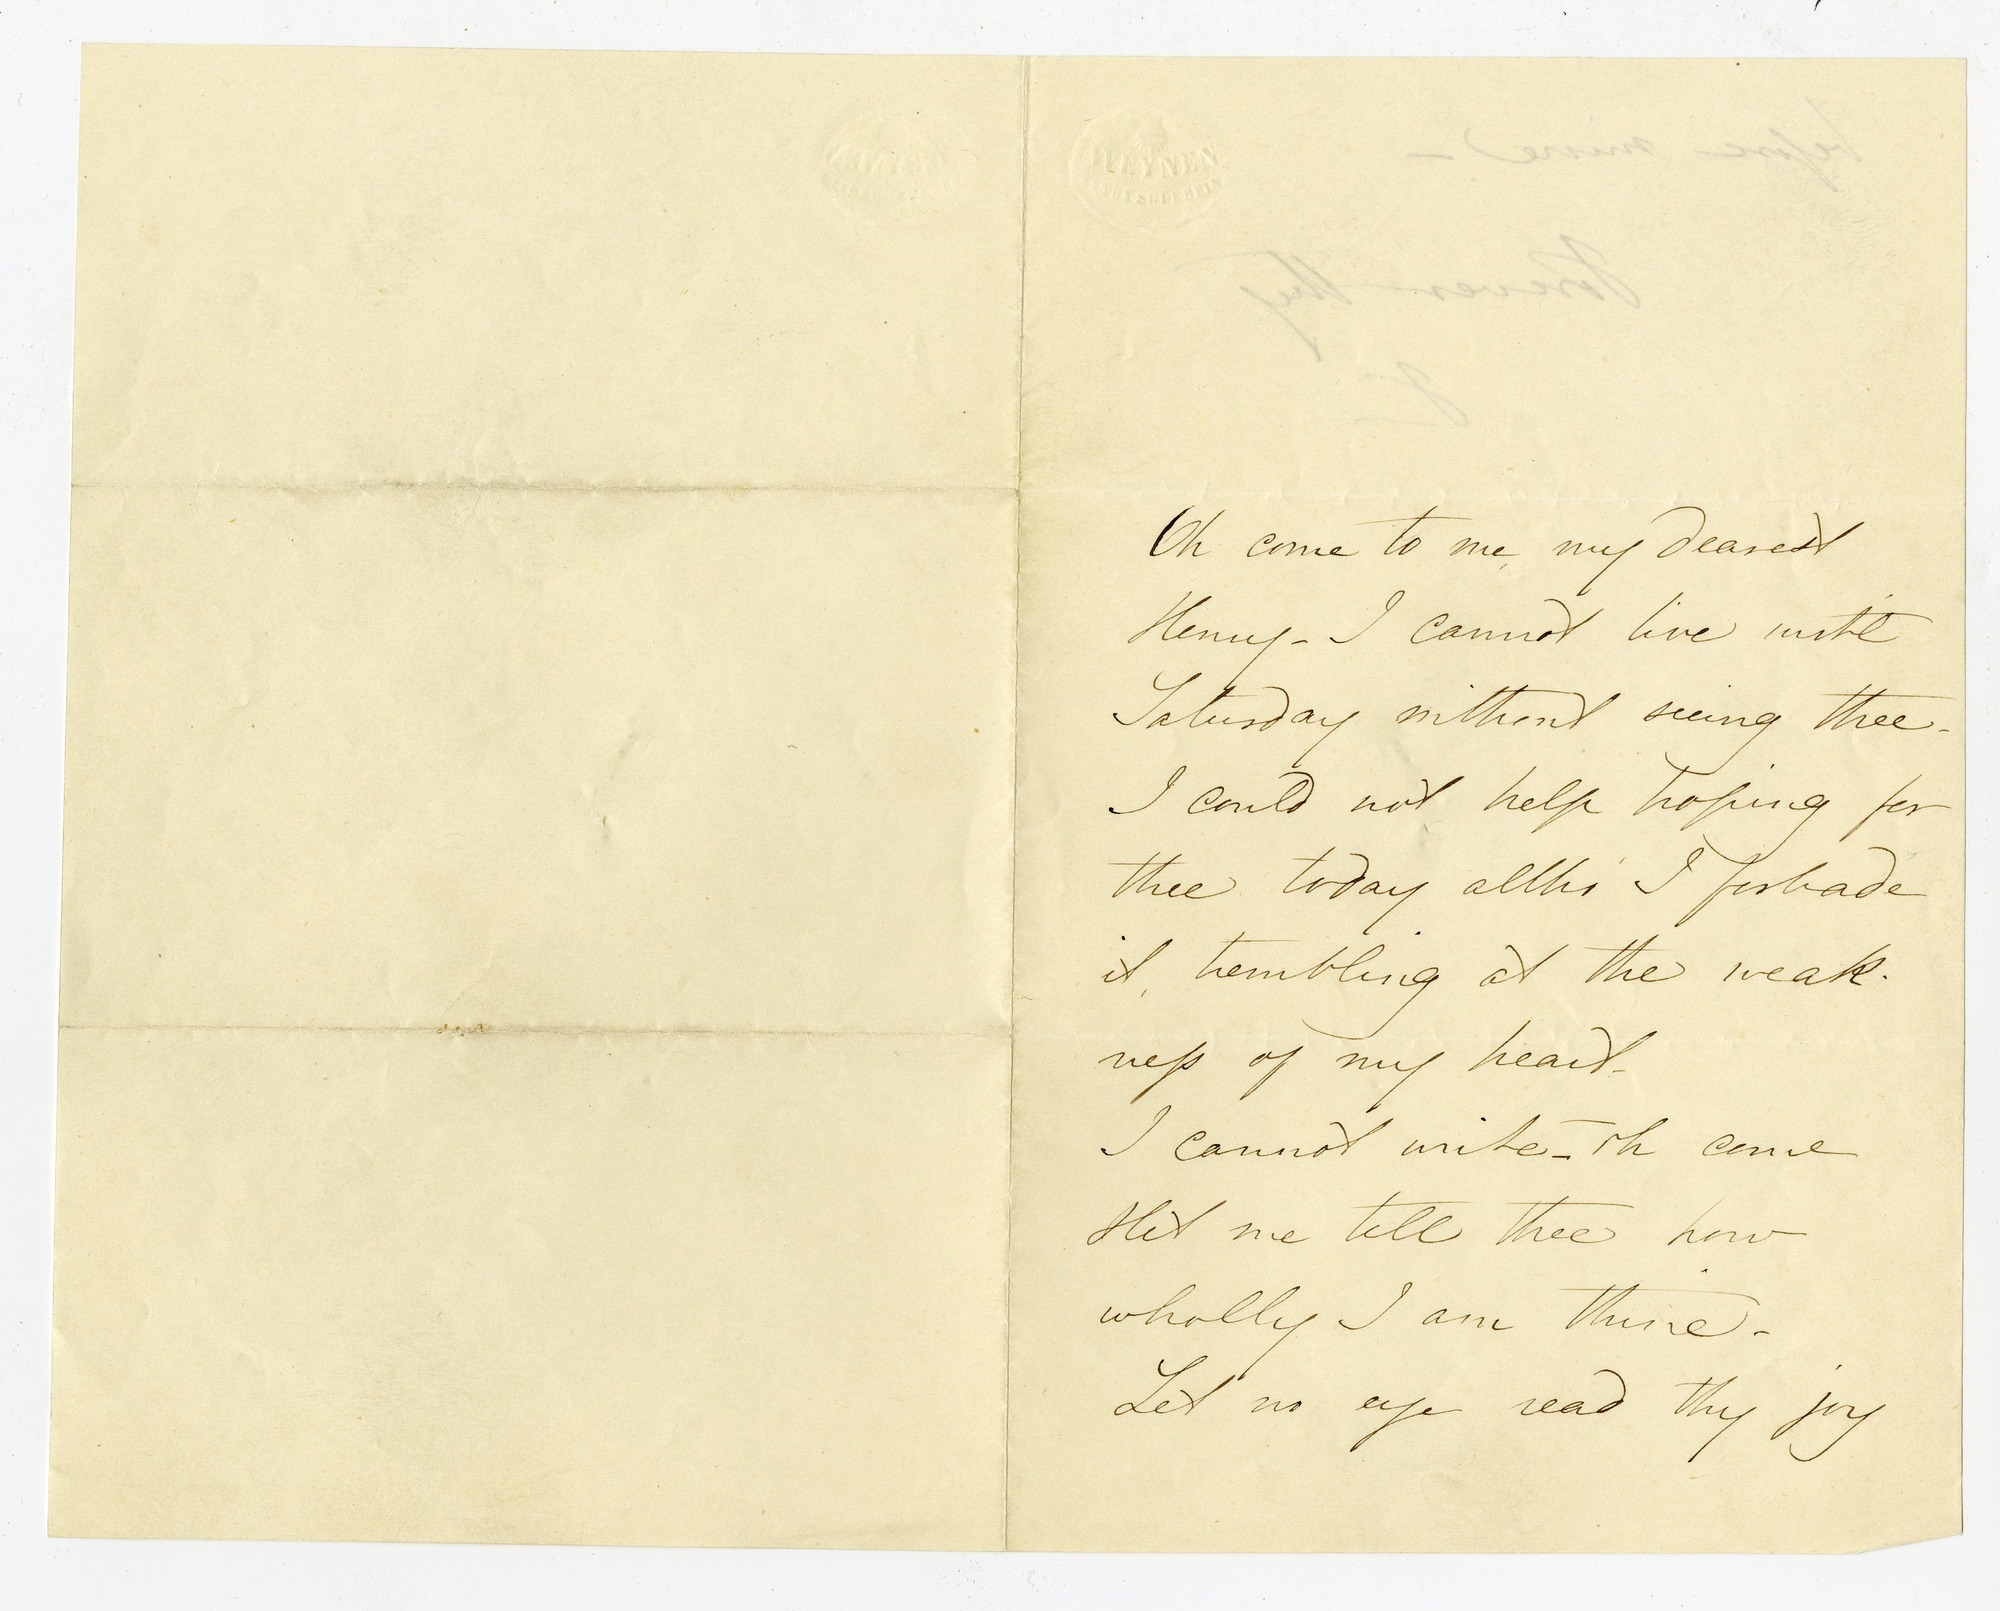 before mine –
Forever thy
F—
Oh come to me, my dearest
Henry – I cannot live until
Saturday without seeing thee –
I could not help hoping for
thee today altho' I forbade
it, trembling at the weak-
ness of my heart –
I cannot write – oh come
& let me tell thee how
wholly I am thine –
Let no eye read thy joy